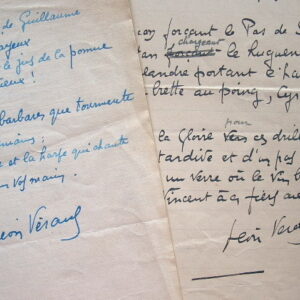 de Guillaume
joyeux
le jus de la pomme
ieux !
barbares que tourmente
mains ;
e et la harpe qui chante
vos mains.
Léon Vérane
forçant le Pas de S
chargeant
le Huguen
léandre portant
brette au poing, Cyr
pour
la Gloire vers ces drill
tardite et d'
un verre où le vin b
Vincent à
Léon Véra